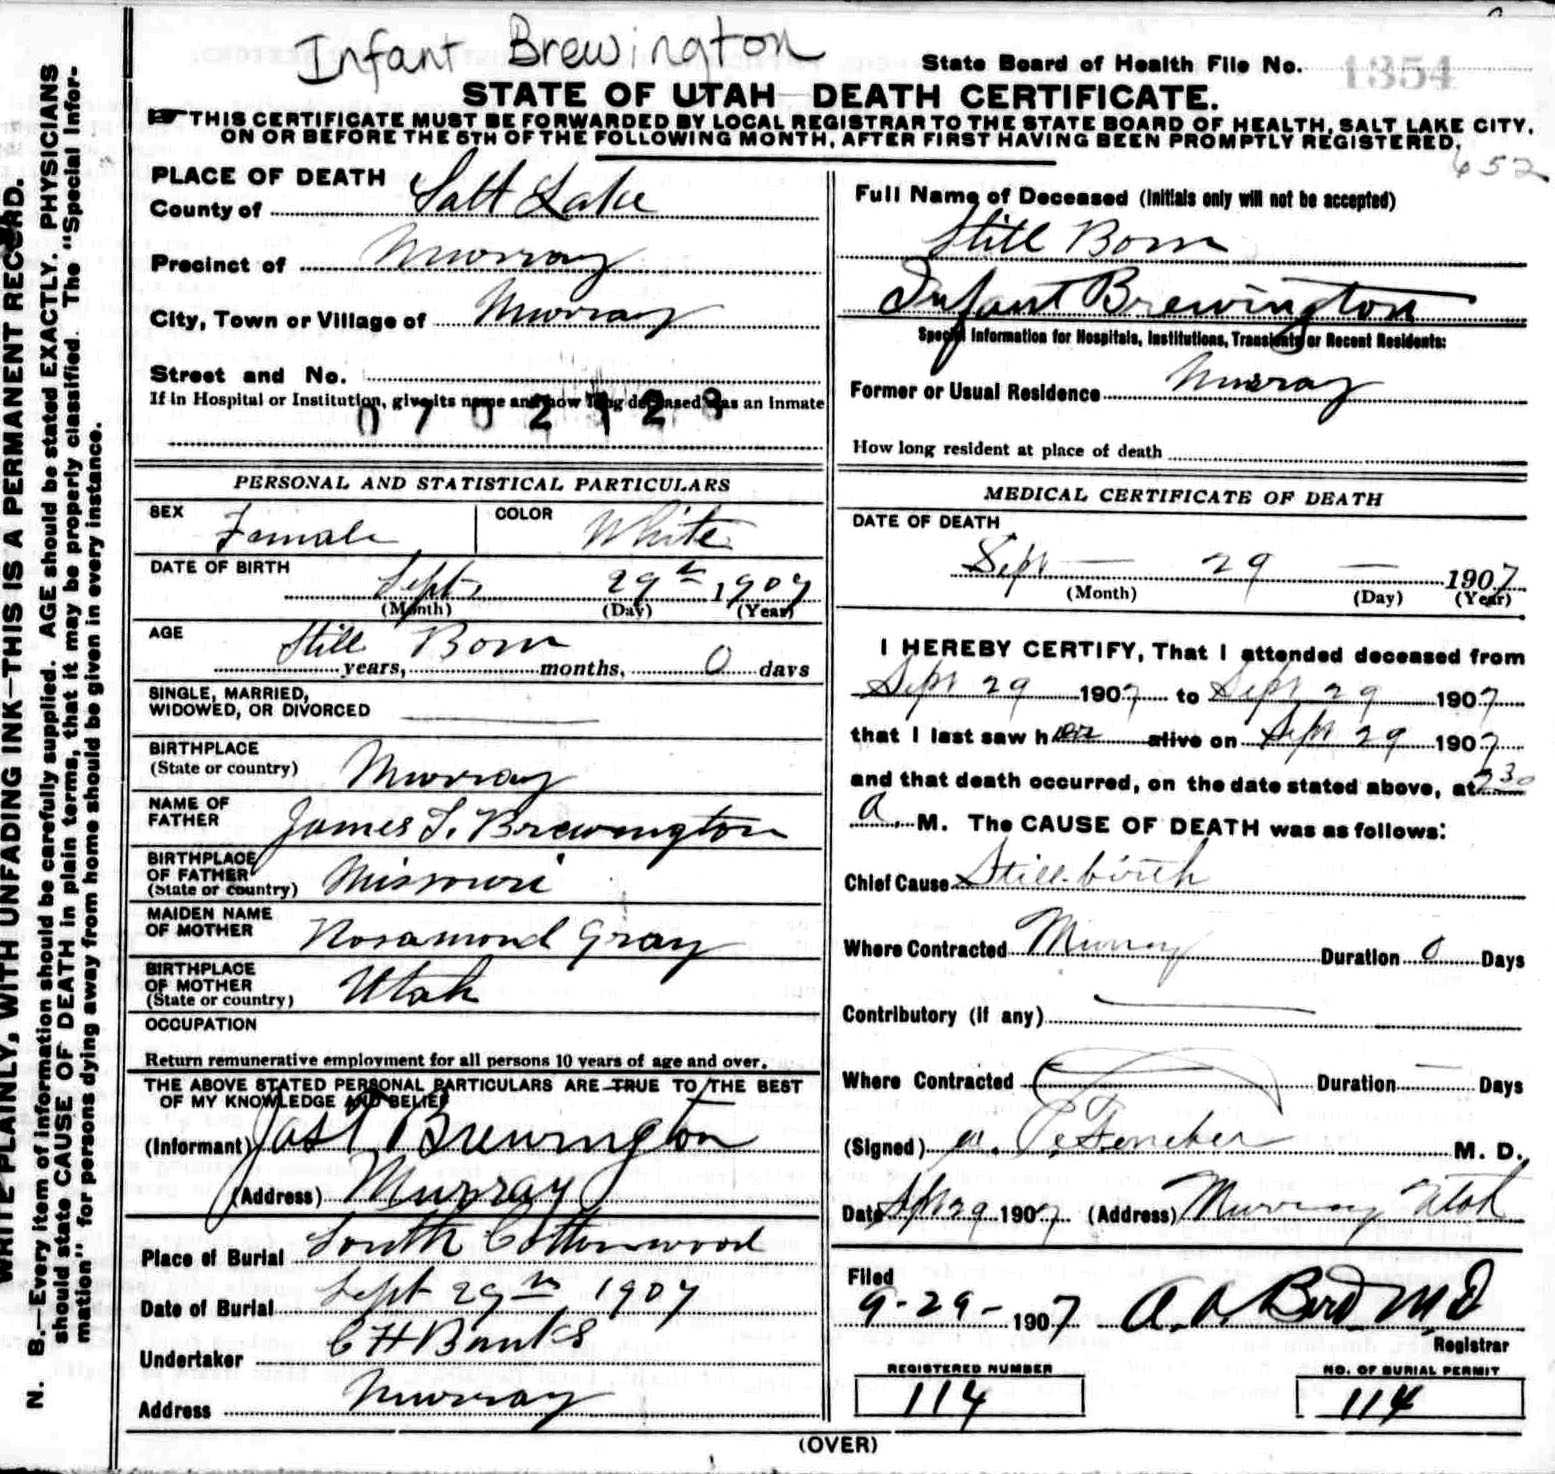 Infant Brewington
State Board of Health File No. 1354
STATE OF UTAH DEATH CERTIFICATE.
THIS CERTIFICATE MUST BE FORWARDED BY LOCAL REGISTRAR TO THE STATE BOARD OF HEALTH, SALT LAKE CITY,
ON OR BEFORE THE 5TH OF THE FOLLOWING MONTH, AFTER FIRST HAVING BEEN PROMPTLY REGISTERED.
652
WRITE PLAINLY, WITH UNFADING INK—THIS IS A PERMANENT RECORD.
N. B.—Every item of information should be carefully supplied. AGE should be stated EXACTLY. PHYSICIANS
should state CAUSE OF DEATH in plain terms, that it may be properly classified. The "Special Infor-
mation" for persons dying away from home should be given in every instance.
PLACE OF DEATH
County of Salt Lake
Precinct of Murray
City, Town or Village of Murray
Street and No.
If in Hospital or Institution, give its name and how long deceased was an inmate
0702128
PERSONAL AND STATISTICAL PARTICULARS
SEX Female COLOR White
DATE OF BIRTH Sept. 29th 1907
(Month) (Day) (Year)
AGE Still Born
years, months, 0 days
SINGLE, MARRIED,
WIDOWED, OR DIVORCED
BIRTHPLACE
(State or country) Murray
NAME OF
FATHER James T. Brewington
BIRTHPLACE
OF FATHER
(State or country) Missouri
MAIDEN NAME
OF MOTHER Rosamond Gray
BIRTHPLACE
OF MOTHER
(State or country) Utah
OCCUPATION
Return remunerative employment for all persons 10 years of age and over.
THE ABOVE STATED PERSONAL PARTICULARS ARE TRUE TO THE BEST
OF MY KNOWLEDGE AND BELIEF
(Informant) Jas T Brewington
(Address) Murray
Place of Burial South Cottonwood
Date of Burial Sept 29th, 1907
Undertaker C H Banks
Address Murray
Full Name of Deceased (Initials only will not be accepted)
Still Born
Infant Brewington
Special Information for Hospitals, Institutions, Transients or Recent Residents:
Former or Usual Residence Murray
How long resident at place of death
MEDICAL CERTIFICATE OF DEATH
DATE OF DEATH
Sept — 29 — 1907
(Month) (Day) (Year)
I HEREBY CERTIFY, That I attended deceased from
Sept 29 1907 to Sept 29 1907
that I last saw her alive on Sept 29 1907
and that death occurred, on the date stated above, at 2 30
a. M. The CAUSE OF DEATH was as follows:
Chief Cause Still-birth
Where Contracted Murray Duration 0 Days
Contributory (if any)
Where Contracted Duration — Days
(Signed) M. D.
Date Sept 29 1907 (Address) Murray Utah
Filed
9-29-1907 A. A. Bird M.D
Registrar
REGISTERED NUMBER
114
NO. OF BURIAL PERMIT
114
(OVER)